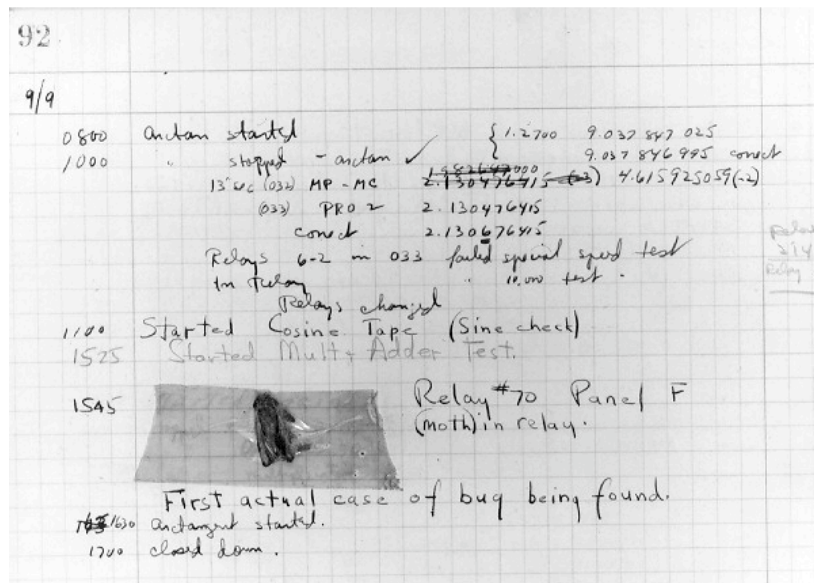 92
9/9
0800 antan started { 1.2700 9.037 847 025
1000 " stopped - antan ✓ 9.037 846 995 conect
13"uc (032) MP - MC 2.130476415 4.615925059(-2)
(033) PRO 2 2.130476415
conect 2.130676415
Relays 6-2 in 033 failed special speed test
In Relay " 10,000 test .
Relays changed
1100 Started Cosine Tape (Sine check)
1525 Started Mult + Adder Test.
1545 Relay #70 Panel F
(moth) in relay.
First actual case of bug being found.
1630 antangent started.
1700 closed down .